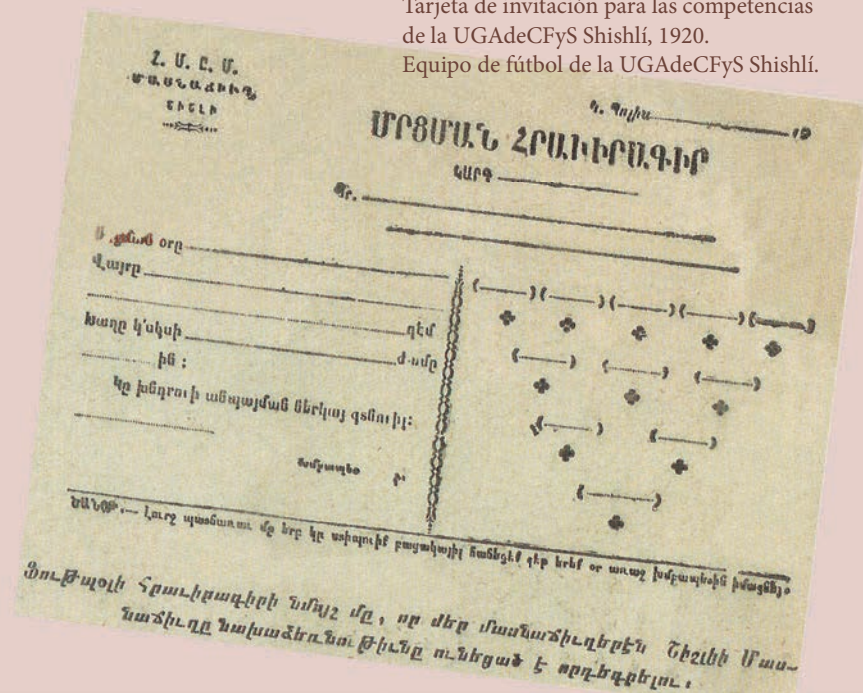 Tarjeta de invitación para las competencias
de la UGAdeCFyS Shishlí, 1920.
Equipo de fútbol de la UGAdeCFyS Shishlí.
Հ. Մ. Ը. Մ.
ՄԱՍՆԱՃԻՒՂ
ՇԻՇԼԻ
Կ. Պոլիս 19
ՄՐՑՄԱՆ ՀՐԱՒԻՐԱԳԻՐ
ԿԱՐԳ
Պր.
օրը
Վայրը
դէմ
Խաղը կ՚սկսի ժամը
ին ։
Կը խնդրուի անպայման ներկայ գտնուիլ։
Խմբապետ
ԾԱՆՕԹ.— Լուրջ պատճառաւ մը երբ կը ստիպուիք բացակայիլ հաճեցէք գէթ երեք օր առաջ խմբապետին իմացնել։
Ֆութպօլի Հրաւիրագիրի նմոյշ մը, որ մեր մասնաճիւղերէն Շիշլիի Մաս-
նաճիւղը նախաձեռնութիւնը ունեցած է որդեգրելու.